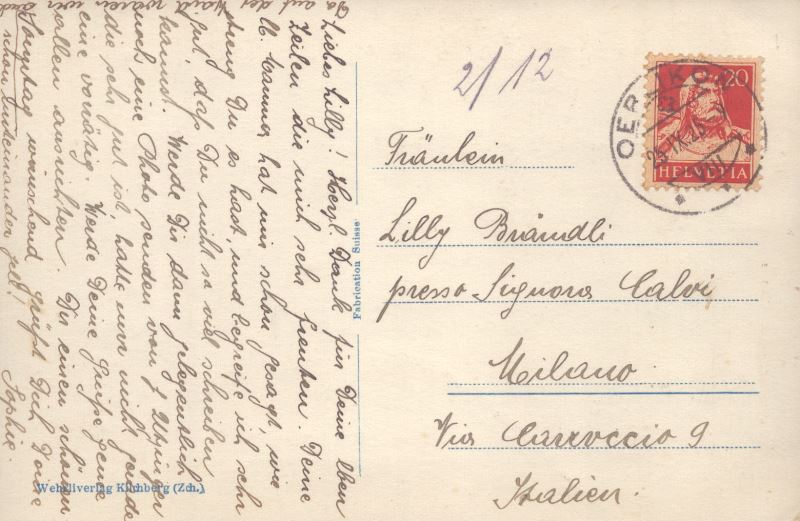 Liebes Lilly! Herzl. Dank für Deine lben
Zeilen die mich sehr freuten. Deine
lb. Mamma hat mir schon gesagt, wie
streng Du es hast, und begreife ich sehr
gut, dass Du nicht so viel schreiben
kannst. Werde Dir dann gelegentlich
noch eine Photo senden von
die sehr gut ist, hatte nun nicht gerade
eine vorrätig. Werde Deine Grüsse gerne
allen ausrichten. Dir einen schönen
wünschend grüsst Dich Deine
Sophie.
schon untereinander gell!
Da auf der waren wir auch
Fabrication Suisse
Wehrliverlag Kilchberg (Zch.)
2/12
OERLIKON
HELVETIA
20
Fräulein
Lilly Brändli
presso Signora Calvi
Milano
Via Carroccio 9
Italien.